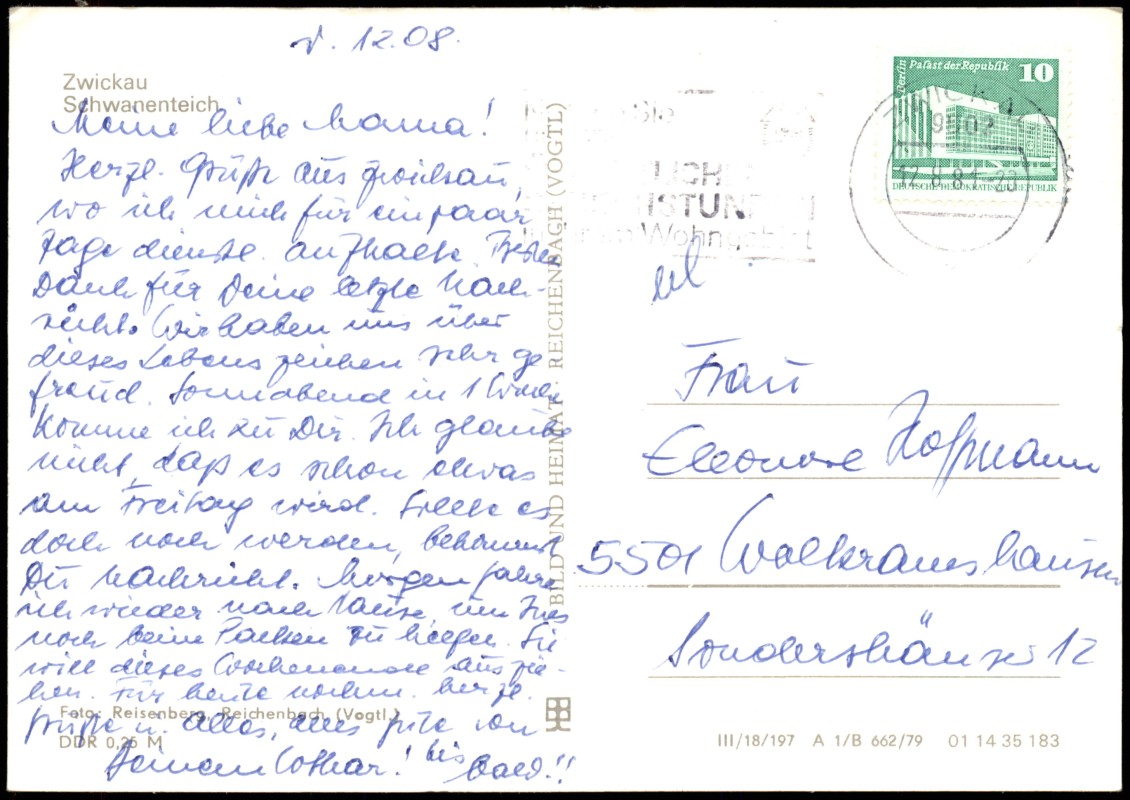 d. 12.08.
Zwickau
Schwanenteich
Meine liebe Mama!
Herzl. Grüße aus Zwickau,
wo ich mich für ein paar
Tage dienstl. aufhalte. Vielen
Dank für Deine letzte Nach-
richt. Wir haben uns über
dieses Lebenszeichen sehr ge
freud. Sonnabend in 1 Woche
komme ich zu Dir. Ich glaube
nicht, daß es schon etwas
am Freitag wird. Sollte es
doch noch werden, bekommst
Du Nachricht. Morgen fahre
ich wieder nach Hause, um Ines
noch beim Packen zu helfen. Sie
will dieses Wochenende auszie-
hen. Für heute nochm. herzl.
Grüße u. alles, alles gute von
Deinem Lothar! bis bald!!
Foto: Reisenberg, Reichenbach (Vogtl.)
DDR 0,25 M
BILD UND HEIMAT REICHENBACH (VOGTL)
Berlin Palast der Republik 10
DEUTSCHE DEMOKRATISCHE REPUBLIK
9502
LICHE
STUNDEN
im Wohngebiet
Frau
Eleonore Hoffmann
5501 Wolkramshausen
Sondershäuser 12
III/18/197 A 1/B 662/79 01 14 35 183